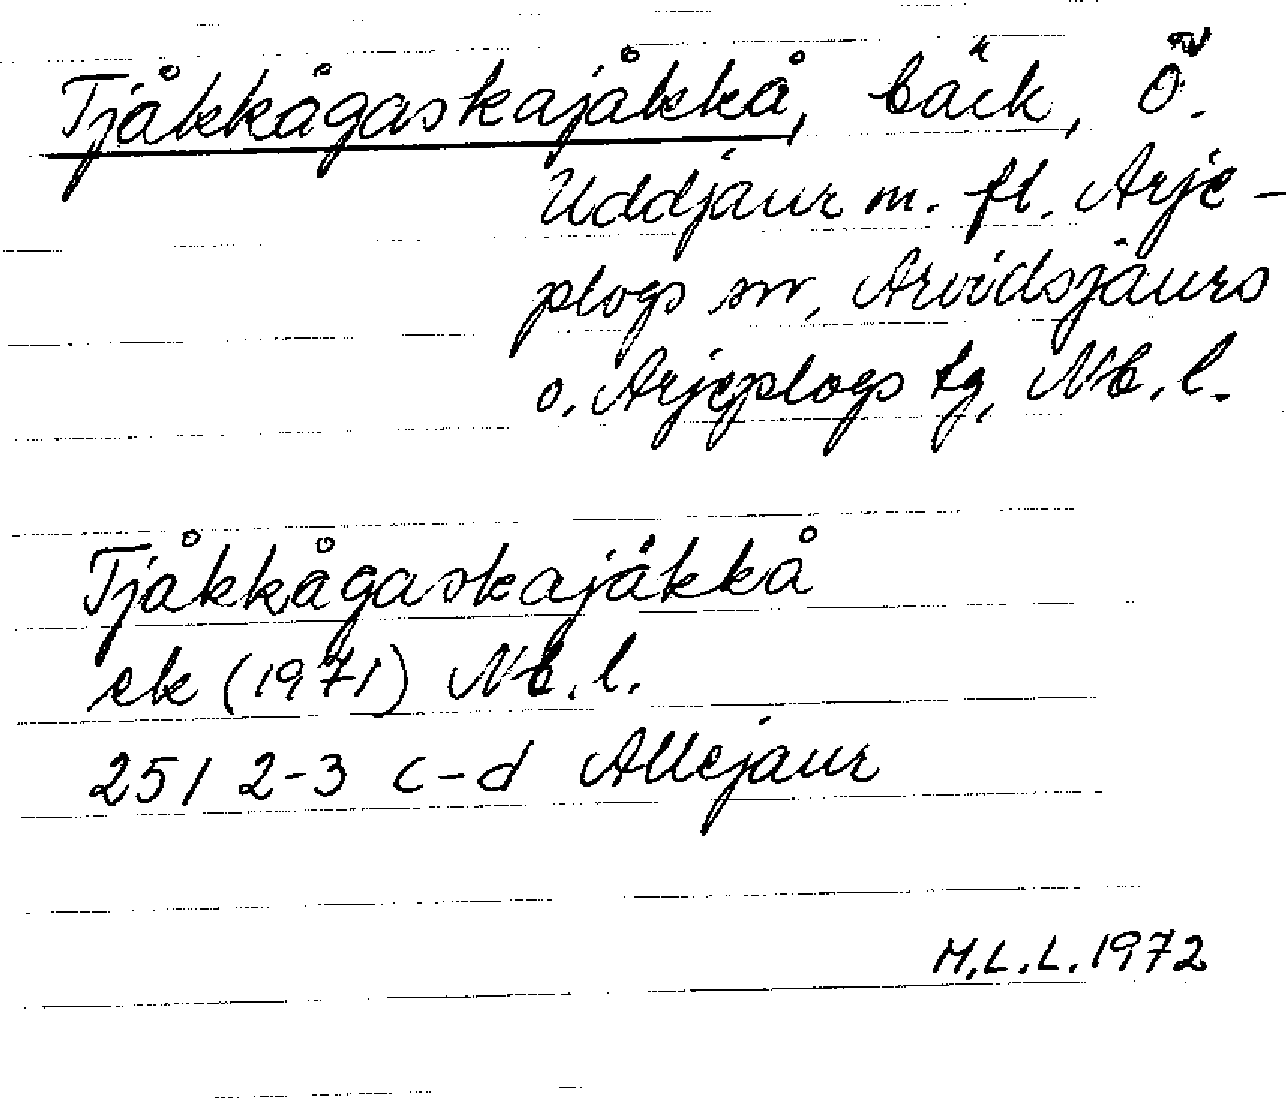 Tjåkkågaskajåkkå, bäck, Ö.
Uddjaur m. fl. Arje-
plogs sn, Arvidsjaurs
o. Arjeplogs tg, Nb. l.
Tjåkkågaskajåkkå
ek (1971) Nb. l.
25I 2-3 c-d Allejaur
M.L.L. 1972